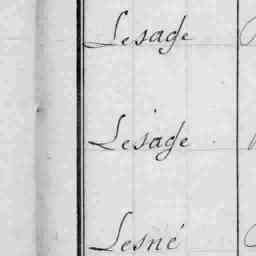 Lesage
Lesage
Lesné